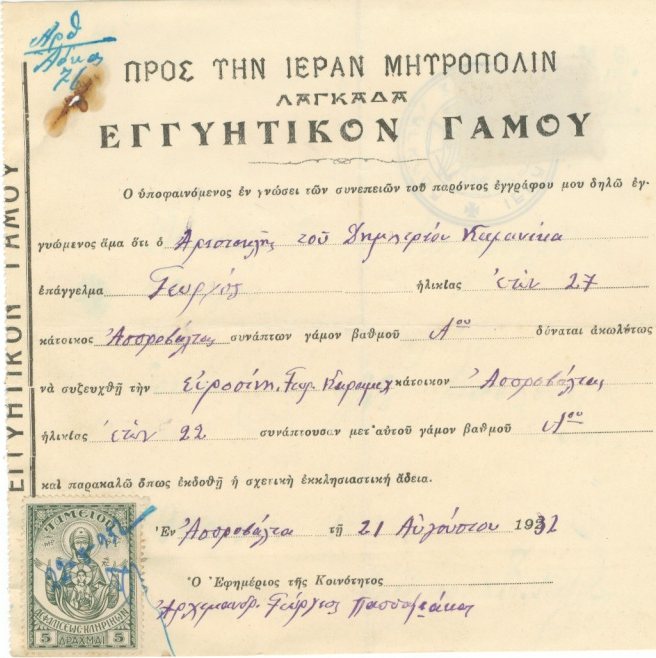 Αρθ
Αδείας
76
ΠΡΟΣ ΤΗΝ ΙΕΡΑΝ ΜΗΤΡΟΠΟΛΙΝ
ΛΑΓΚΑΔΑ
ΕΓΓΥΗΤΙΚΟΝ ΓΑΜΟΥ
Ὁ ὑποφαινόμενος ἐν γνώσει τῶν συνεπειῶν τοῦ παρόντος ἐγγράφου μου δηλῶ ἐγ-
γυώμενος ἅμα ὅτι ὁ Ἀριστοτέλης τοῦ Δημητρίου
ἐπάγγελμα Γεωργός ἡλικίας ἐτῶν 27
κάτοικος Ἀσπροβάλτας συνάπτων γάμον βαθμοῦ Αου δύναται ἀκωλύτως
νὰ συζευχθῇ τὴν Εὐφροσύνη Γεωρ. κάτοικον Ἀσπροβάλτας
ἡλικίας ἐτῶν 22 συνάπτουσαν μετ' αὐτοῦ γάμον βαθμοῦ Αου
καὶ παρακαλῶ ὅπως ἐκδοθῇ ἡ σχετικὴ ἐκκλησιαστικὴ ἄδεια.
Ἐν Ἀσπροβάλτα τῇ 21 Αὐγούστου 1932
Ὁ Ἐφημέριος τῆς Κοινότητος
Ἀρχιμανδρ. Γεώργιος
ΕΓΓΥΗΤΙΚΟΝ ΓΑΜΟΥ
ΤΑΜΕΙΟΝ
ΑΣΦΑΛΙΣΕΩΣ ΚΛΗΡΙΚΩΝ
5 ΔΡΑΧΜΑΙ 5